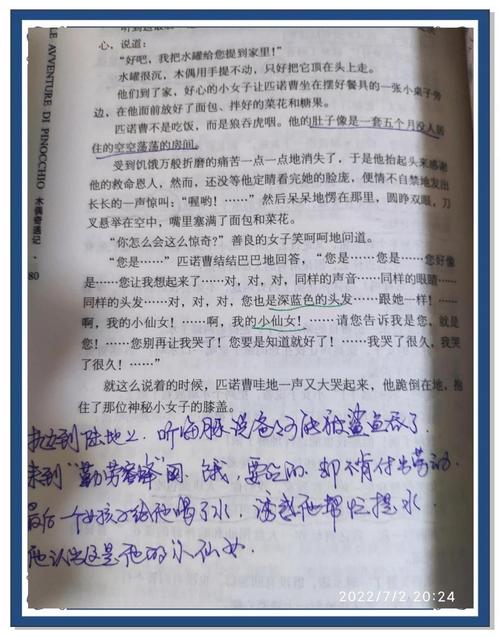 LE AVVENTURE DI PINOCCHIO 木偶奇遇记 · 80
心，说道：
“好吧，我把水罐给您提到家里！”
水罐很沉，木偶用手提不动，只好把它顶在头上走。
他们到了家，好心的小女子让匹诺曹坐在摆好餐具的一张小桌子旁
边，在他面前放好了面包、拌好的菜花和糖果。
匹诺曹不是吃饭，而是狼吞虎咽。他的肚子像是一套五个月没人居
住的空空荡荡的房间。
受到饥饿万般折磨的痛苦一点一点地消失了，于是他抬起头来感谢
他的救命恩人，然而，还没等他定睛看完她的脸庞，便情不自禁地发出
长长的一声惊叫：“喔哟！……”然后呆呆地愣在那里，圆睁双眼，刀
叉悬举在空中，嘴里塞满了面包和菜花。
“你怎么会这么惊奇？”善良的女子笑呵呵地问道。
“您是……”匹诺曹结结巴巴地回答，“您是……您是……您好像
是……您让我想起来了……对，对，对，同样的声音……同样的眼睛……
同样的头发……对，对，对，您也是深蓝色的头发……跟她一样！……
啊，我的小仙女！……啊，我的小仙女！……请您告诉我是您，就是
您！……您别再让我哭了！您要是知道就好了！……我哭了很久，我哭
了很久！……”
就这么说着的时候，匹诺曹哇地一声又大哭起来，他跪倒在地，抱
住了那位神秘小女子的膝盖。
到陆地上，听海豚说爸爸可能被鲨鱼吞了
来到“勤劳蜜蜂”国，饿，要吃的，却不肯付出劳动
最后一个女孩子给他喝了水，诱惑他帮忙提水
他认出这是他的小仙女．
2022/7/2 20:24